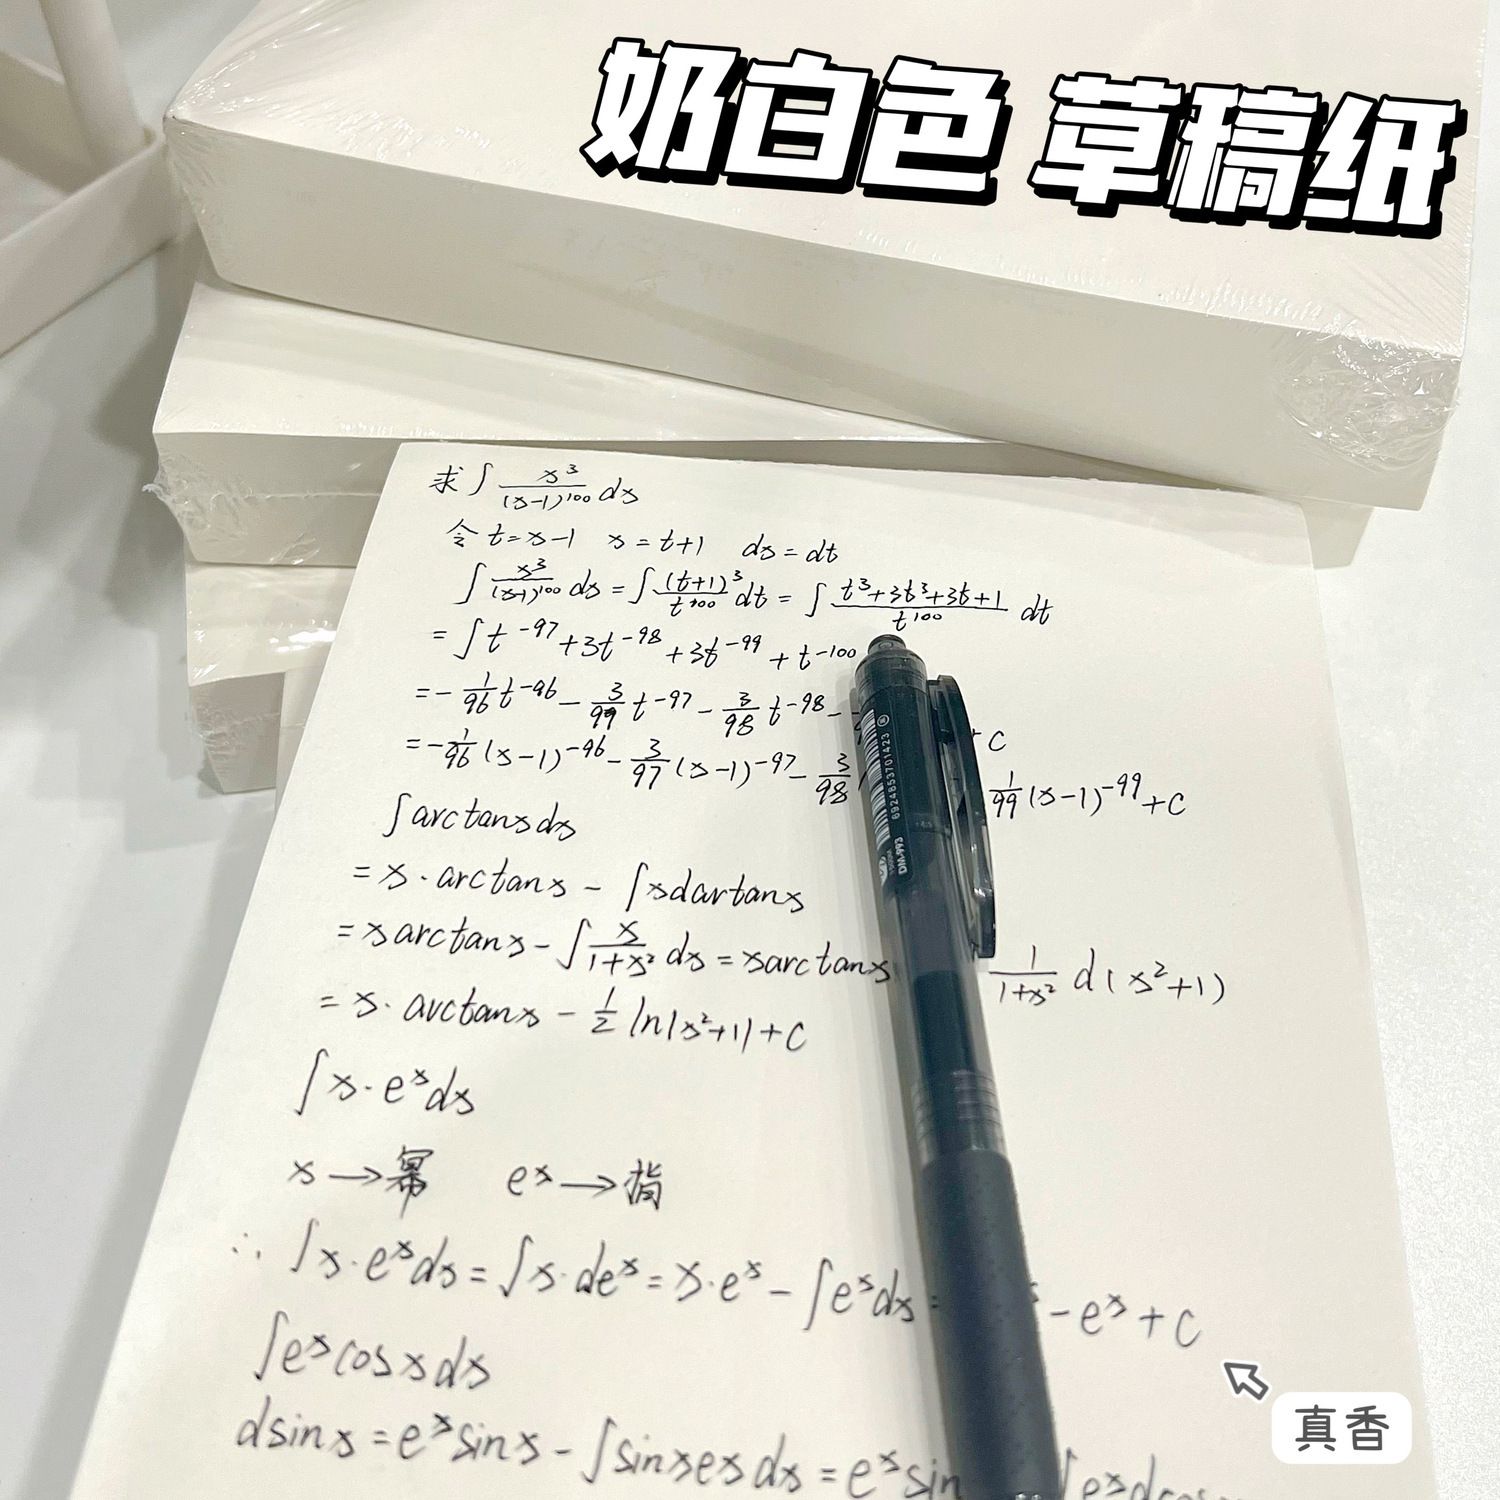 奶白色 草稿纸
求∫x³/(x-1)¹⁰⁰ dx
令 t=x-1 x=t+1 dx=dt
∫x³/(x-1)¹⁰⁰ dx = ∫(t+1)³/t¹⁰⁰ dt = ∫(t³+3t³+3t+1)/t¹⁰⁰ dt
= ∫t⁻⁹⁷+3t⁻⁹⁸+3t⁻⁹⁹+t⁻¹⁰⁰
= -1/96 t⁻⁹⁶ - 3/97 t⁻⁹⁷ - 3/98 t⁻⁹⁸ - + C
= -1/96 (x-1)⁻⁹⁶ - 3/97 (x-1)⁻⁹⁷ - 3/98 1/99 (x-1)⁻⁹⁹ + C
∫arctanxdx
= x·arctanx - ∫xdartanx
= xarctanx - ∫x/(1+x²) dx = xarctanx 1/(1+x²) d(x²+1)
= x·arctanx - 1/2 ln|x²+1|+C
∫x·eˣdx
x→幂 eˣ→指
∴ ∫x·eˣdx = ∫x·deˣ = x·eˣ - ∫eˣdx = - eˣ + C
∫eˣcosxdx
dsinx = eˣsinx - ∫sinxexdx = eˣsin ∫exdcosx
真香
6924853701423
DM-993